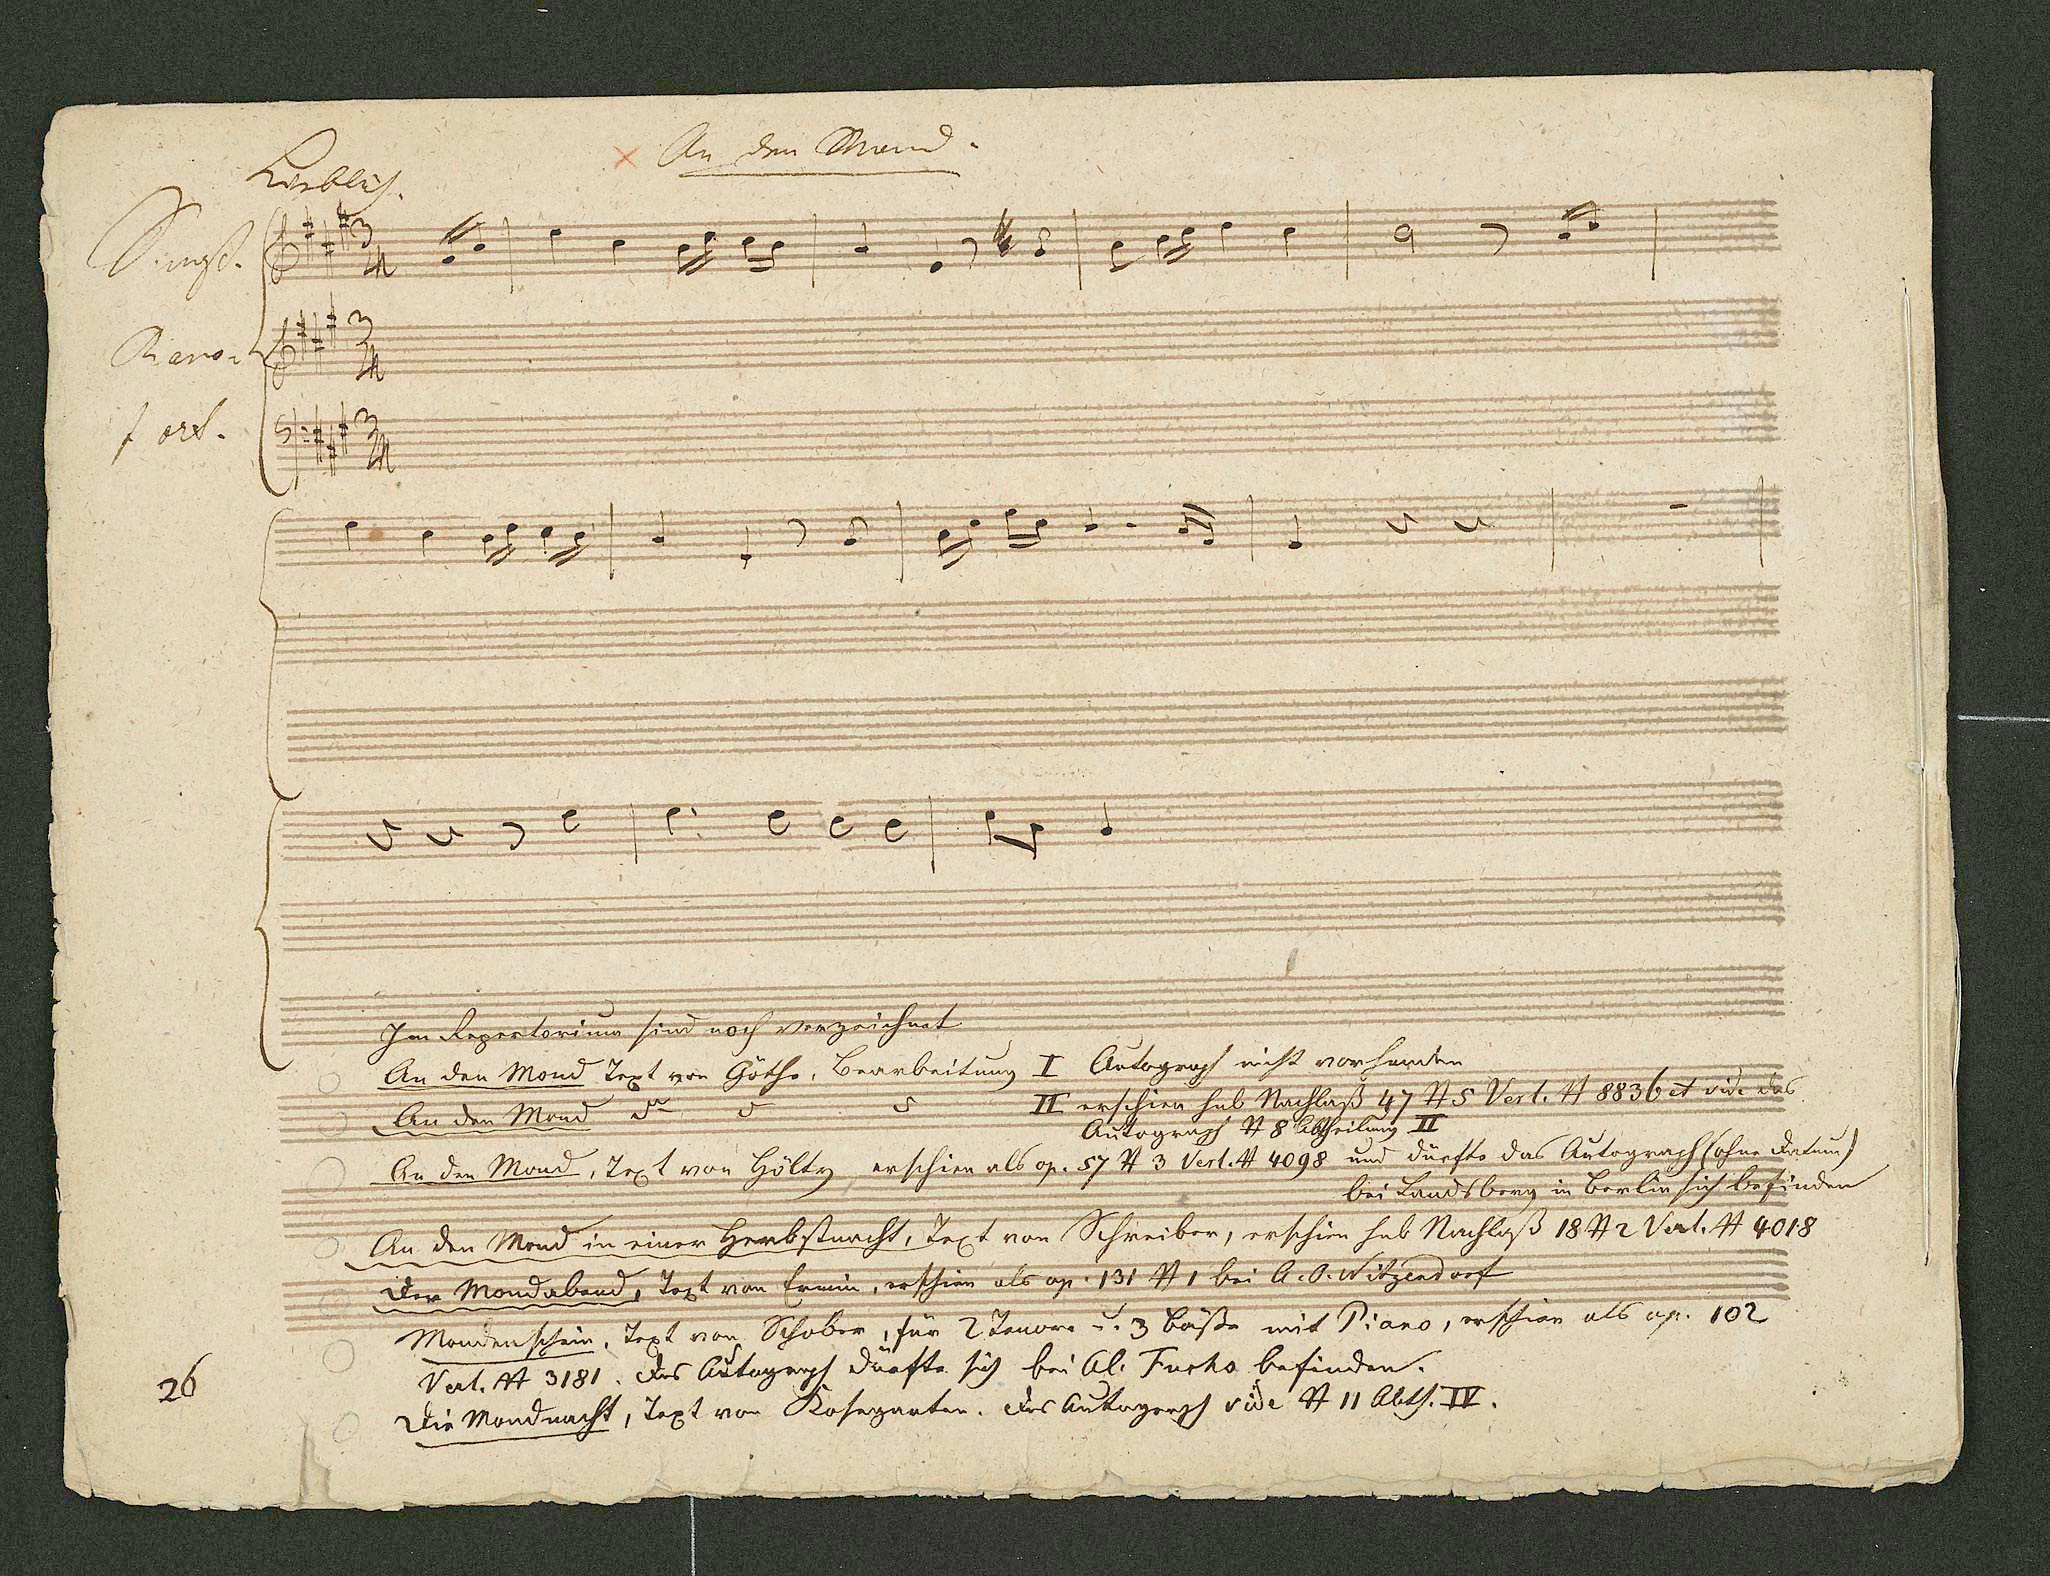 An den Mond.
Lieblich.
Singst.
Piano-
fort.
Im Repertorium sind noch verzeichnet
An den Mond Text von Göthe, Bearbeitung I Autograph nicht vorhanden
An den Mond II erschien sub Nachlaß 47 N 5 Verl. N 8836 et vide das
Autograph N 8 Abtheilung II
An den Mond, Text von Hölty erschien als op. 57 N 3 Verl. N 4098 und dürfte das Autograph (ohne Datum)
bei Landsberg in Berlin sich befinden
An den Mond in einer Herbstnacht, Text von Schreiber, erschien sub Nachlaß 18 N 2 Verl. N 4018
Der Mondabend, Text von Ermin, erschien als op. 131 N 1 bei A. O. Witzendorf
Mondenschein, Text von Schober, für 2 Tenore u. 3 Bäße mit Piano, erschien als op. 102
Verl. N 3181. Das Autograph dürfte sich bei Al. Fuchs befinden.
Die Mondnacht, Text von Kosegarten. Das Autograph vide N 11 Abth. IV.
26